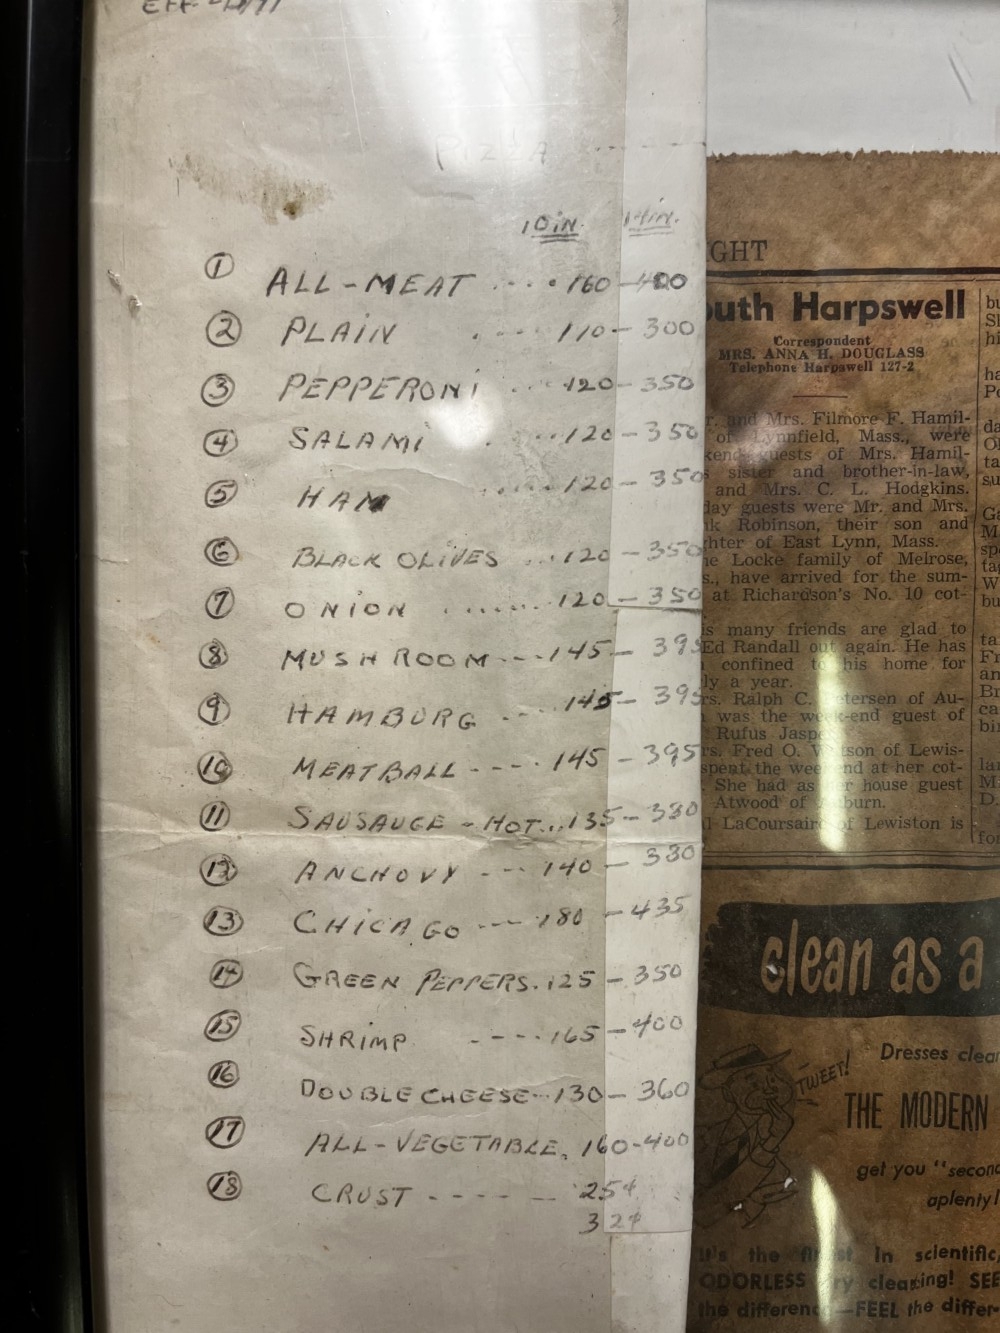 EFF
PIZZA
10 IN. 14 IN.
① ALL-MEAT .... 160-400
② PLAIN .... 110-300
③ PEPPERONI ... 120-350
④ SALAMI .... 120-350
⑤ HAM ..... 120-350
⑥ BLACK OLIVES ... 120-350
⑦ ONION ....... 120-350
⑧ MUSHROOM --- 145-395
⑨ HAMBURG --- 145-395
⑩ MEATBALL ---- 145-395
⑪ SAUSAUGE - HOT... 135-380
⑫ ANCHOVY --- 140-380
⑬ CHICAGO --- 180-435
⑭ GREEN PEPPERS. 125-350
⑮ SHRIMP ---- 165-400
⑯ DOUBLE CHEESE-- 130-360
⑰ ALL-VEGETABLE. 160-400
⑱ CRUST ----- 25¢
32¢
GHT
outh Harpswell
Correspondent
MRS. ANNA H. DOUGLASS
Telephone Harpswell 127-2
r. and Mrs. Filmore F. Hamil-
of Lynnfield, Mass., were
kend guests of Mrs. Hamil-
s sister and brother-in-law,
and Mrs. C. L. Hodgkins.
day guests were Mr. and Mrs.
nk Robinson, their son and
ghter of East Lynn, Mass.
he Locke family of Melrose,
s., have arrived for the sum-
at Richardson's No. 10 cot-
is many friends are glad to
Ed Randall out again. He has
confined to his home for
ly a year.
rs. Ralph C. Petersen of Au-
was the week-end guest of
Rufus
rs. Fred O. Watson of Lewis-
spent the weekend at her cot-
. She had as her house guest
Atwood of Auburn.
LaCoursaire of Lewiston is
clean as a
Dresses clean
TWEET!
THE MODERN
get you "second
aplenty!
It's the finest in scientific,
ODORLESS dry cleaning! SEE
the difference—FEEL the differ-